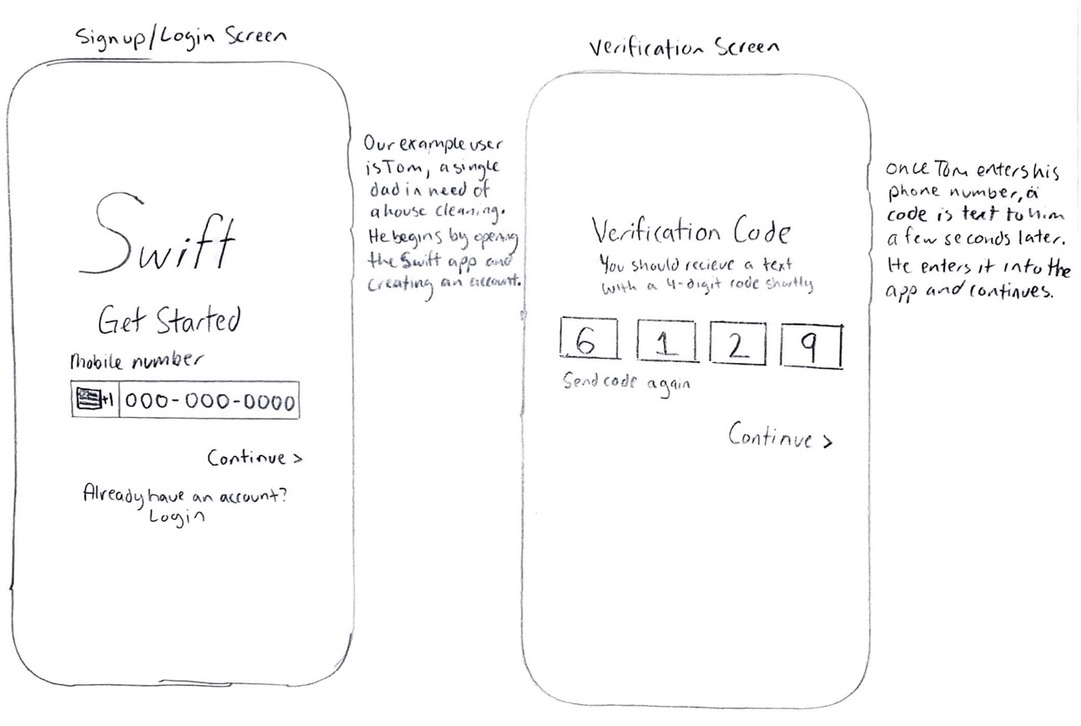 Signup/Login Screen
Swift
Get Started
Mobile number
+1 000-000-0000
Continue >
Already have an account?
Login
Our example user
is Tom, a single
dad in need of
a house cleaning.
He begins by opening
the Swift app and
creating an account.
Verification Screen
Verification Code
You should recieve a text
with a 4-digit code shortly
6 1 2 9
Send code again
Continue >
once Tom enters his
phone number, a
code is text to him
a few seconds later.
He enters it into the
app and continues.